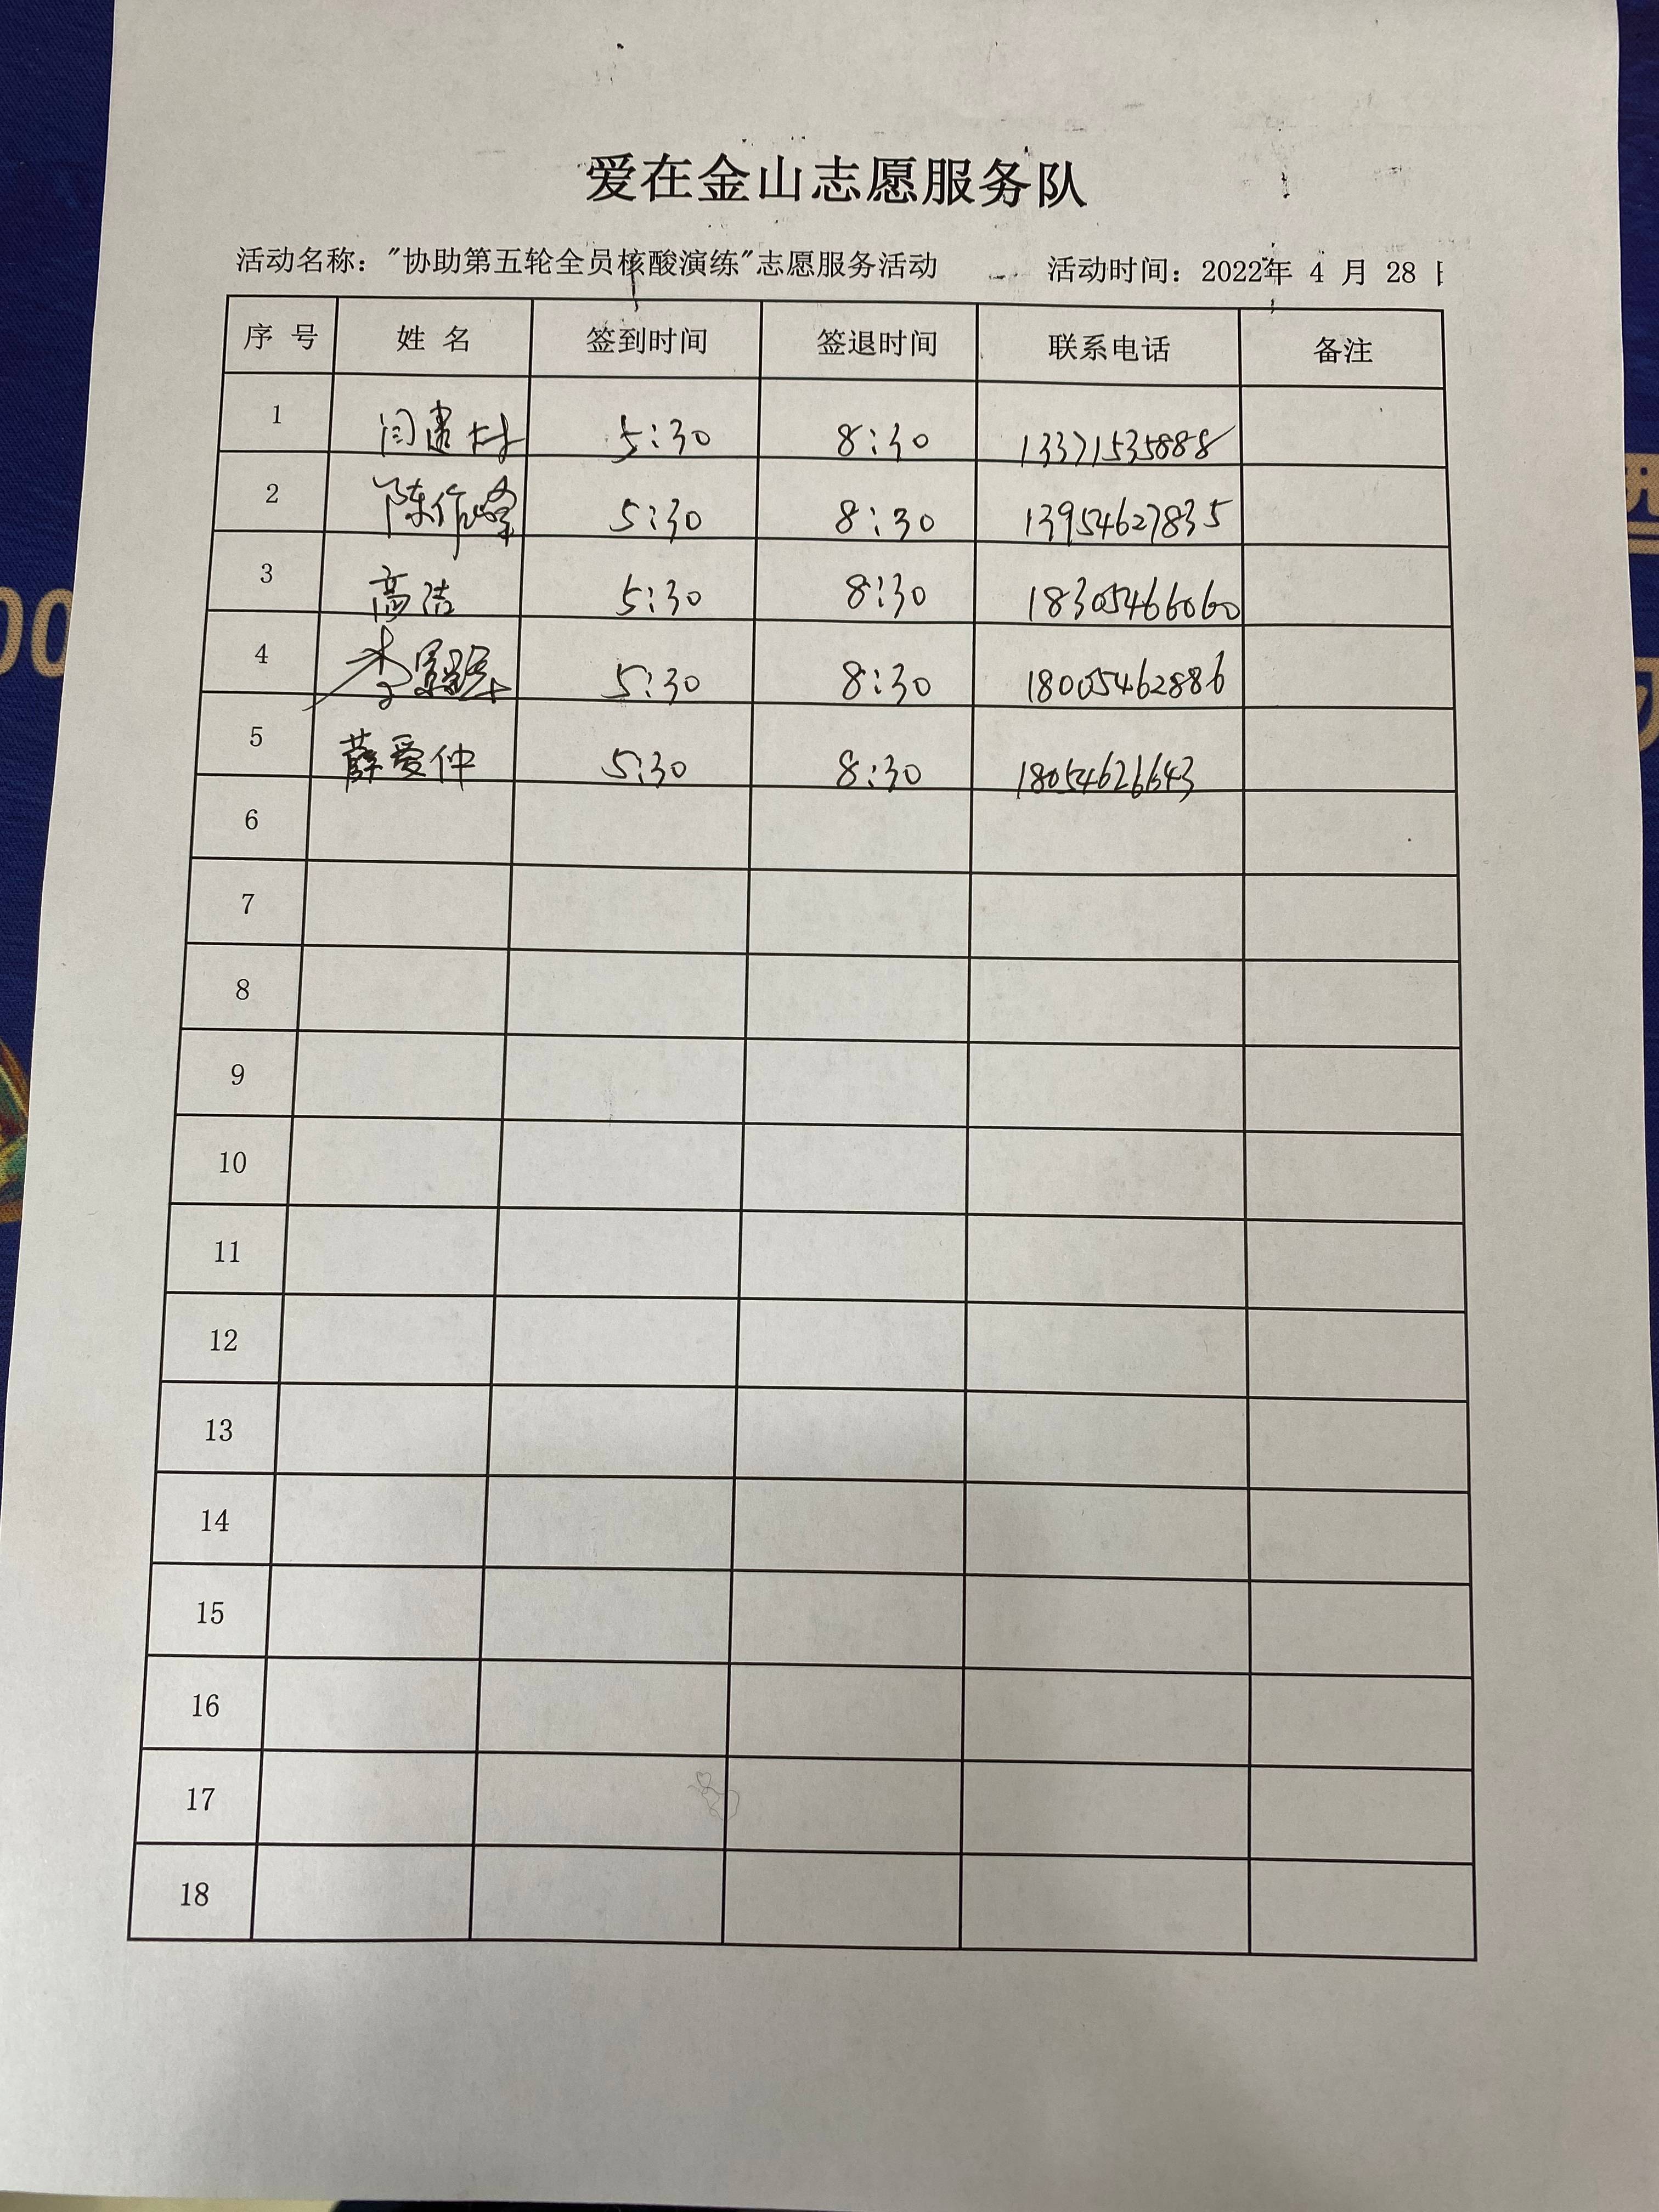 爱在金山志愿服务队
活动名称："协助第五轮全员核酸演练"志愿服务活动 活动时间：2022年 4 月 28 日
序 号 姓 名 签到时间 签退时间 联系电话 备注
1 闫建村 5:30 8:30 13371535888
2 陈作峰 5:30 8:30 13954627835
3 高洁 5:30 8:30 18305466060
4 李 5:30 8:30 18005462886
5 薛爱仲 5:30 8:30 18054626643
6
7
8
9
10
11
12
13
14
15
16
17
18
00